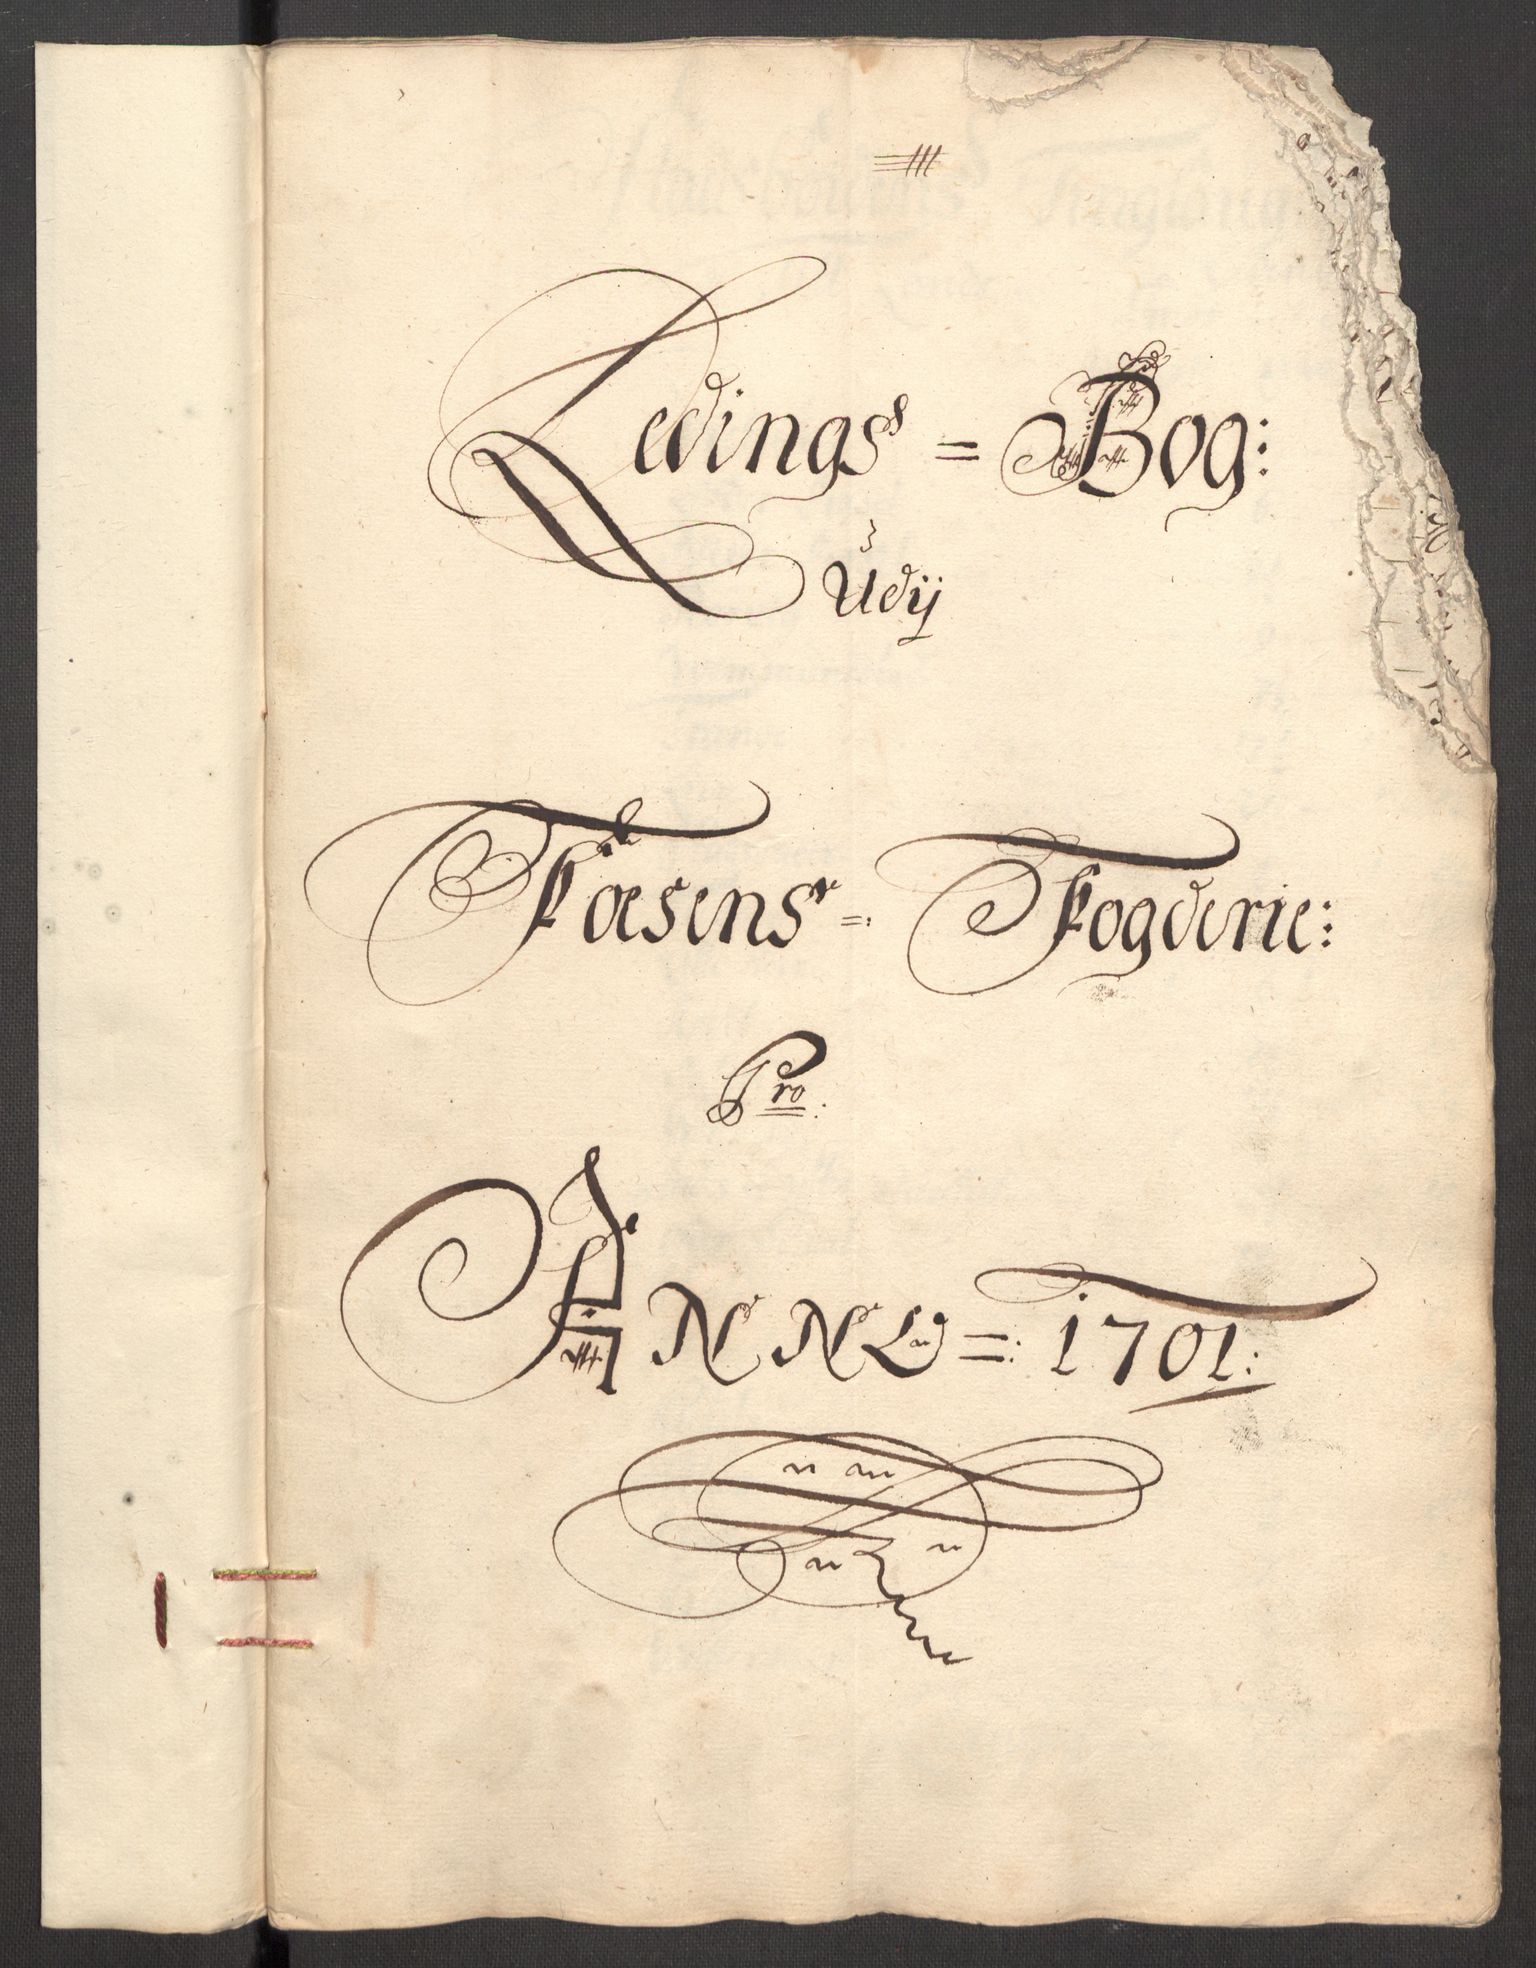 Ledings = Bog:
Udij
Foesens =: Fogderie:
Pro.
ANNO =: 1701: